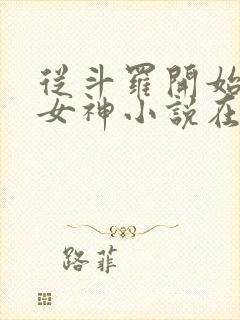 從斗羅開始
女神小說在
路菲